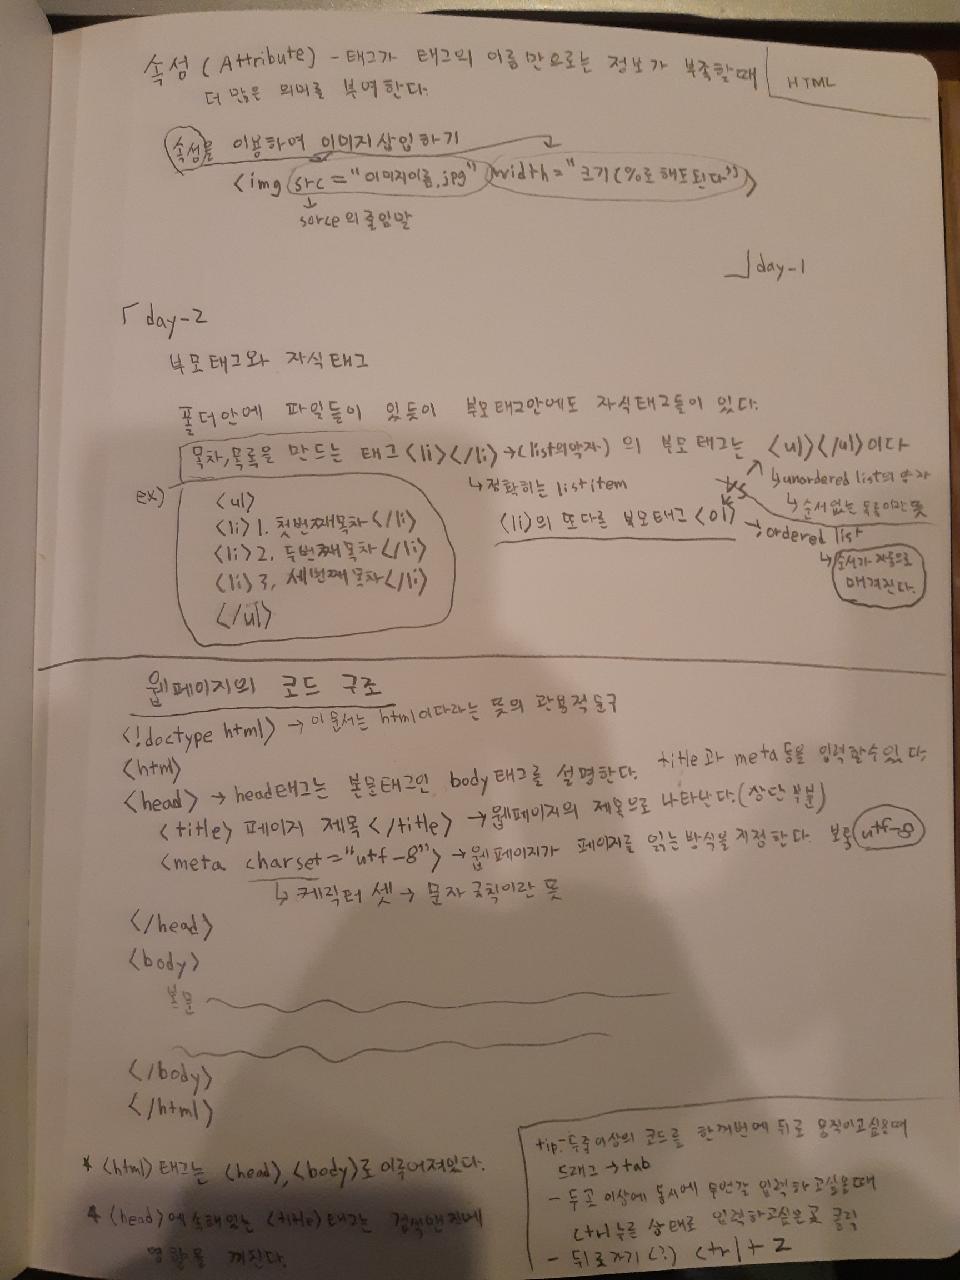 속성 (Attribute) - 태그가 태그의 이름만으로는 정보가 부족할때
HTML
더 많은 의미를 부여한다.
속성을 이용하여 이미지삽입하기
<img src="이미지이름.jpg" width="크기(%로해도된다")>
sorce의줄임말
day-1
day-2
부모태그와 자식태그
폴더안에 파일들이 있듯이 부모태그안에도 자식태그들이 있다.
목차,목록을 만드는 태그<li></li>→(list의약자)의 부모태그는 <ul></ul>이다
↳정확히는 listitem
↳unordered list의 약자
↳순서없는 목록이란 뜻
vs
ex)
<ul>
<li> 1. 첫번째목차</li>
<li> 2. 두번째목차</li>
<li> 3. 세번째목차</li>
</ul>
<li>의 또다른 부모태그 <ol> →ordered list
↳순서가 자동으로
매겨진다.
웹페이지의 코드 구조
<!doctype html> → 이 문서는 html이다라는 뜻의 관용적문구
<html>
<head> → head태그는 본문태그인 body태그를 설명한다. title과 meta등을 입력할수있다.
<title> 페이지 제목</title> →웹페이지의 제목으로 나타난다.(상단부분)
<meta charset="utf-8"> →웹페이지가 페이지를 읽는방식을 지정한다. 보통 utf-8
↳캐릭터 셋→ 문자 규칙이란 뜻
</head>
<body>
본문
</body>
</html>
* <html> 태그는 <head>, <body>로 이루어져있다.
* <head>에 속해있는 <title>태그는 검색엔진에
영향을 끼친다.
tip-두줄이상의 코드를 한꺼번에 뒤로 움직이고싶을때
드래그→tab
- 두곳 이상에 동시에 무언갈 입력하고싶을때
ctrl누른 상태로 입력하고싶은곳 클릭
- 뒤로가기(?) ctrl + z